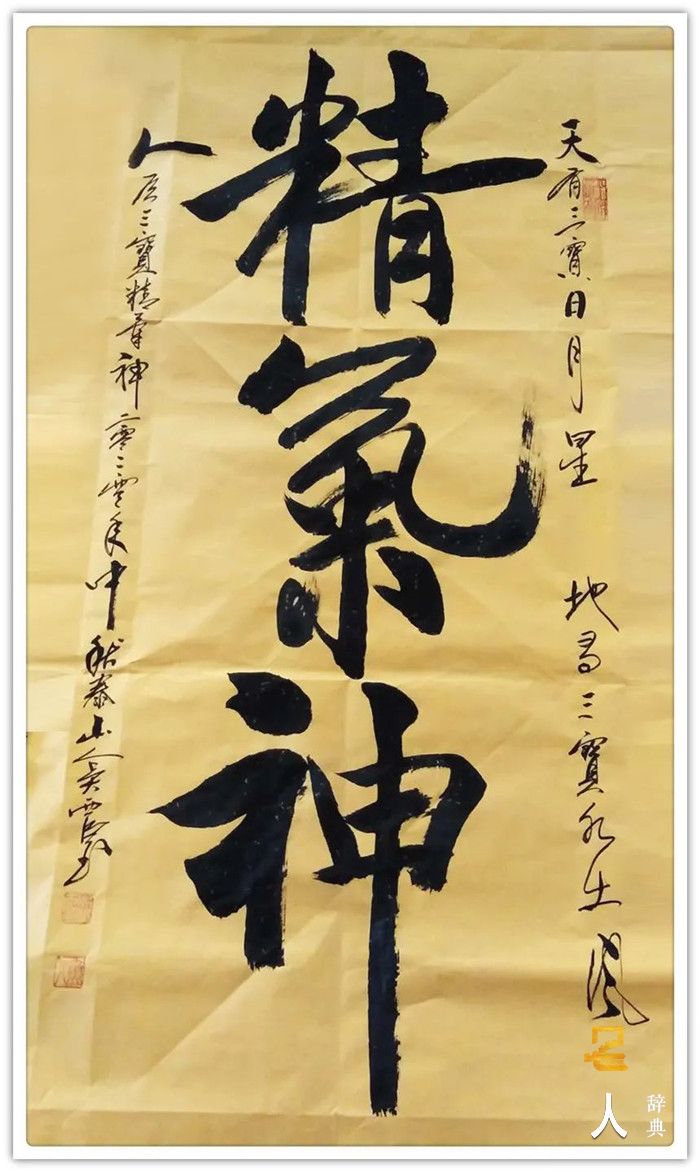 天有三寶日月星 地有三寶水土風
精氣神
人有三寶精氣神 二零二零年中秋泰山人吴
名人
辞典